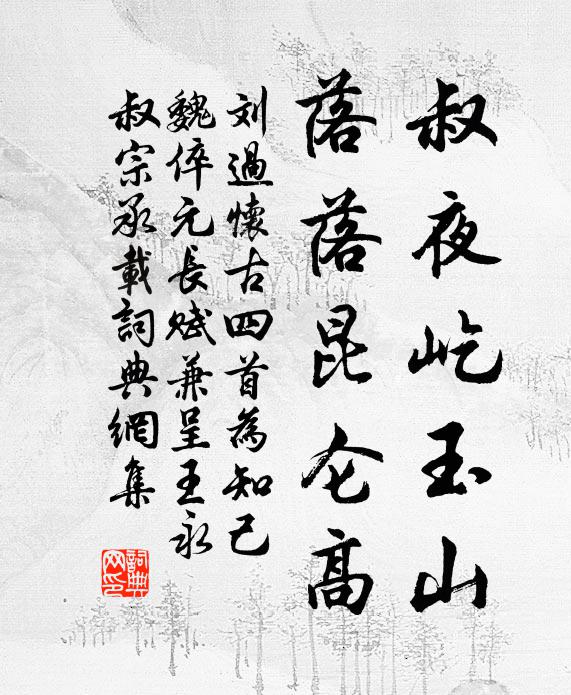 叔夜屹玉山
落落昆仑高
刘過懷古四首為知己
魏倅元長赋兼呈王永
叔宗承載詞典網集
詞典
网印